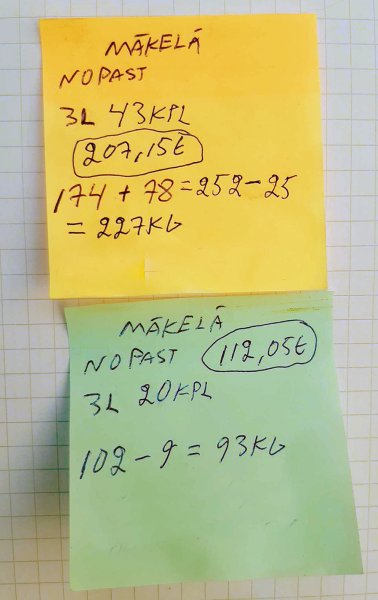 MÄKELÄ
NOPAST
3L 43KPL
207,15€
174 + 78 = 252 - 25
= 227KG
MÄKELÄ
NOPAST 112,05€
3L 20KPL
102 - 9 = 93KG